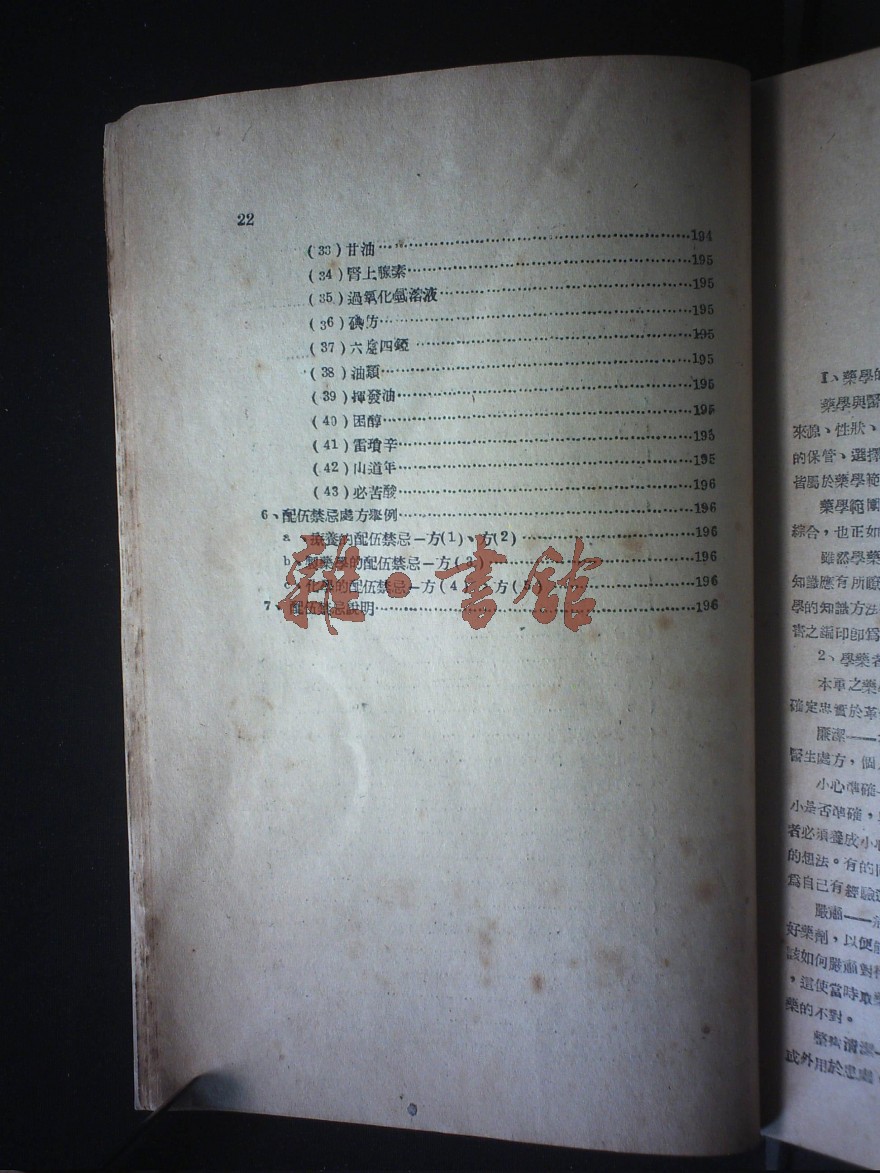 22
(33)甘油……194
(34)腎上腺素……195
(35)過氧化氫溶液……195
(36)碘仿……195
(37)六……195
(38)油類……195
(39)揮發油……195
(40)困醇……195
(41)雷瑣辛……195
(42)山道年……195
(43)必苦酸……196
6、配伍禁忌處方舉例……196
a、的配伍禁忌—方(1)、方(2)……196
b、製藥學的配伍禁忌—方(3)……196
c、化學的配伍禁忌—方(4)、方(5)……196
7、配伍禁忌說明……196
雜·書館
1、藥學的
藥學與醫
來源、性狀、
的保管、選擇
皆屬於藥學範
藥學範圍
綜合,也正如
雖然學藥
知識應有所
學的知識方法
書之編印即爲
2、學藥者
本車之藥
確定忠實於革
廉潔——
醫生處方,個
小心準確—
小是否準確,
者必須養成小
的想法。有的
爲自己有經驗
嚴肅——
好藥劑,以便
該如何嚴肅對
,這使當時取
藥的不對。
整齊清潔—
或外用於患處